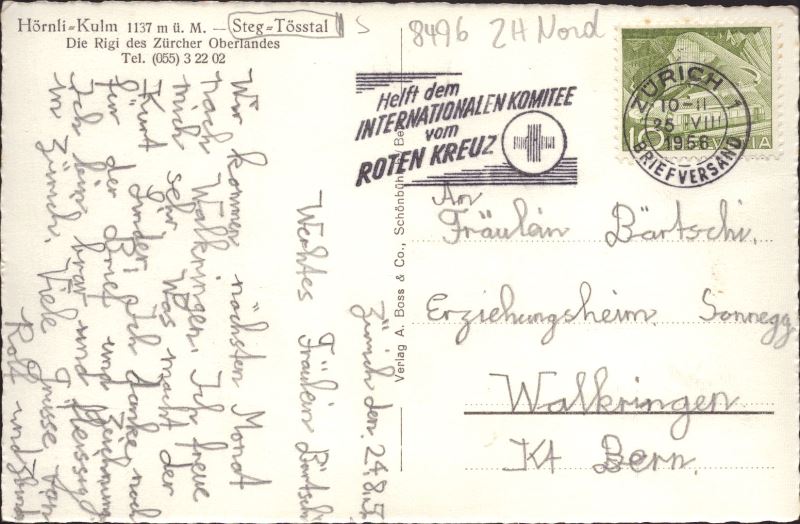 Hörnli-Kulm 1137 m ü. M. — Steg-Tösstal
Die Rigi des Zürcher Oberlandes
Tel. (055) 3 22 02
S
8496 ZH Nord
Helft dem
INTERNATIONALEN KOMITEE
vom
ROTEN KREUZ
ZÜRICH 1
10-11
25. VIII
1956
BRIEFVERSAND
10 HELVETIA
Verlag A. Boss & Co., Schönbühl / Be
An
Fräulein Bärtschi.
Erziehungsheim Sonnegg.
Walkringen
Kt Bern.
Zürich den. 24.8.5
Wehtes Fräulein Bärtschi
Wir kommen nächsten Monat
nach Walkringen. Ich freue
mich sehr. Was macht der
Kurt Inder, Ich danke noch
für der Brief und Zeichnung
Ich bin brav und fleissig
in Zürich. Viele Grüsse von
Rolf und